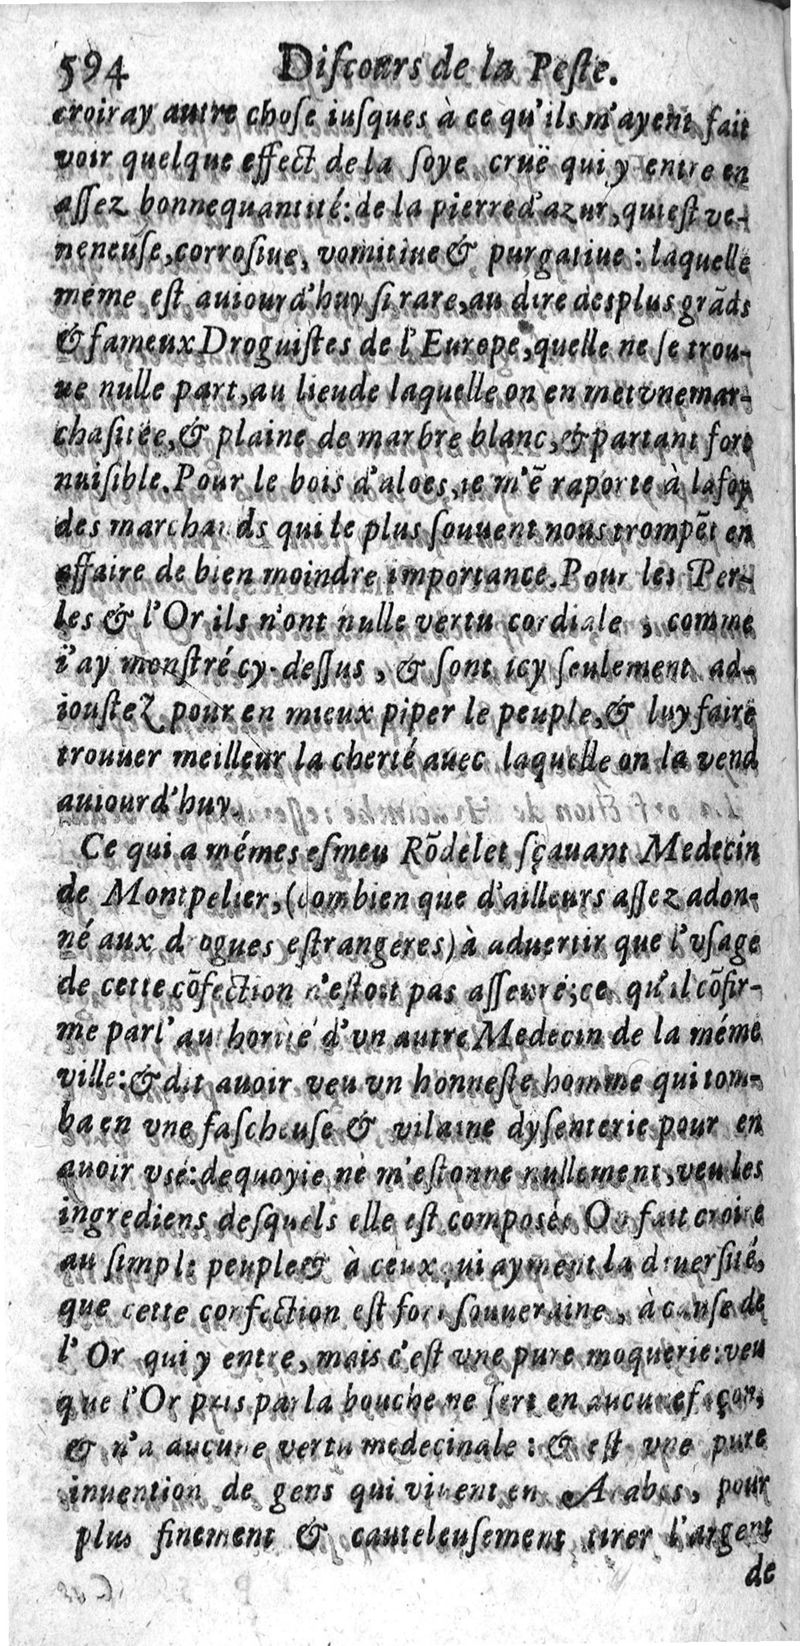 594 Diſcours de la Peſte.
croiray autre choſe iuſques à ce qu'ils m'ayent fait
voir quelque effect de la ſoye cruë qui y entre en
aſſez bonne quantité: de la pierre d'azur, qui eſt ve-
neneuſe, corroſiue, vomitiue & purgatiue: laquelle
méme eſt auiourd'huy ſi rare, au dire des plus grãds
& fameux Droguiſtes de l'Europe, quelle ne ſe trou-
ue nulle part, au lieu de laquelle on en met vne mar-
chaſitée, & plaine de marbre blanc, & partant fort
nuiſible. Pour le bois d'aloes, ie m'ẽ raporte à la foy
des marchands qui le plus ſouuent nous trompẽt en
affaire de bien moindre importance. Pour les Per-
les & l'Or ils n'ont nulle vertu cordiale, comme
i'ay monſtré cy-deſſus, & ſont icy ſeulement ad-
iouſtez pour en mieux piper le peuple, & luy faire
trouuer meilleur la cherté auec laquelle on la vend
auiourd'huy.
Ce qui a mémes eſmeu Rõdelet ſçauant Medecin
de Montpelier, (combien que d'ailleurs aſſez adon-
né aux drogues eſtrangeres) à aduertir que l'vſage
de cette cõfection n'eſtoit pas aſſeuré; ce qu'il cõfir-
me par l'authorité d'vn autre Medecin de la méme
ville: & dit auoir veu vn honneſte homme qui tom-
ba en vne faſcheuſe & vilaine dyſenterie pour en
auoir vsé: dequoy ie ne m'eſtonne nullement, veu les
ingrediens deſquels elle eſt composée On fait croire
au ſimple peuple & à ceux qui ayment la diuerſité,
que cette confection eſt fort ſouueraine, à cauſe de
l'Or qui y entre, mais c'eſt vne pure moquerie: veu
que l'Or pris par la bouche ne ſert en aucune façon,
& n'a aucune vertu medecinale: & eſt vne pure
inuention de gens qui viuent en Arabes, pour
plus finement & cauteleuſement tirer l'argent
de